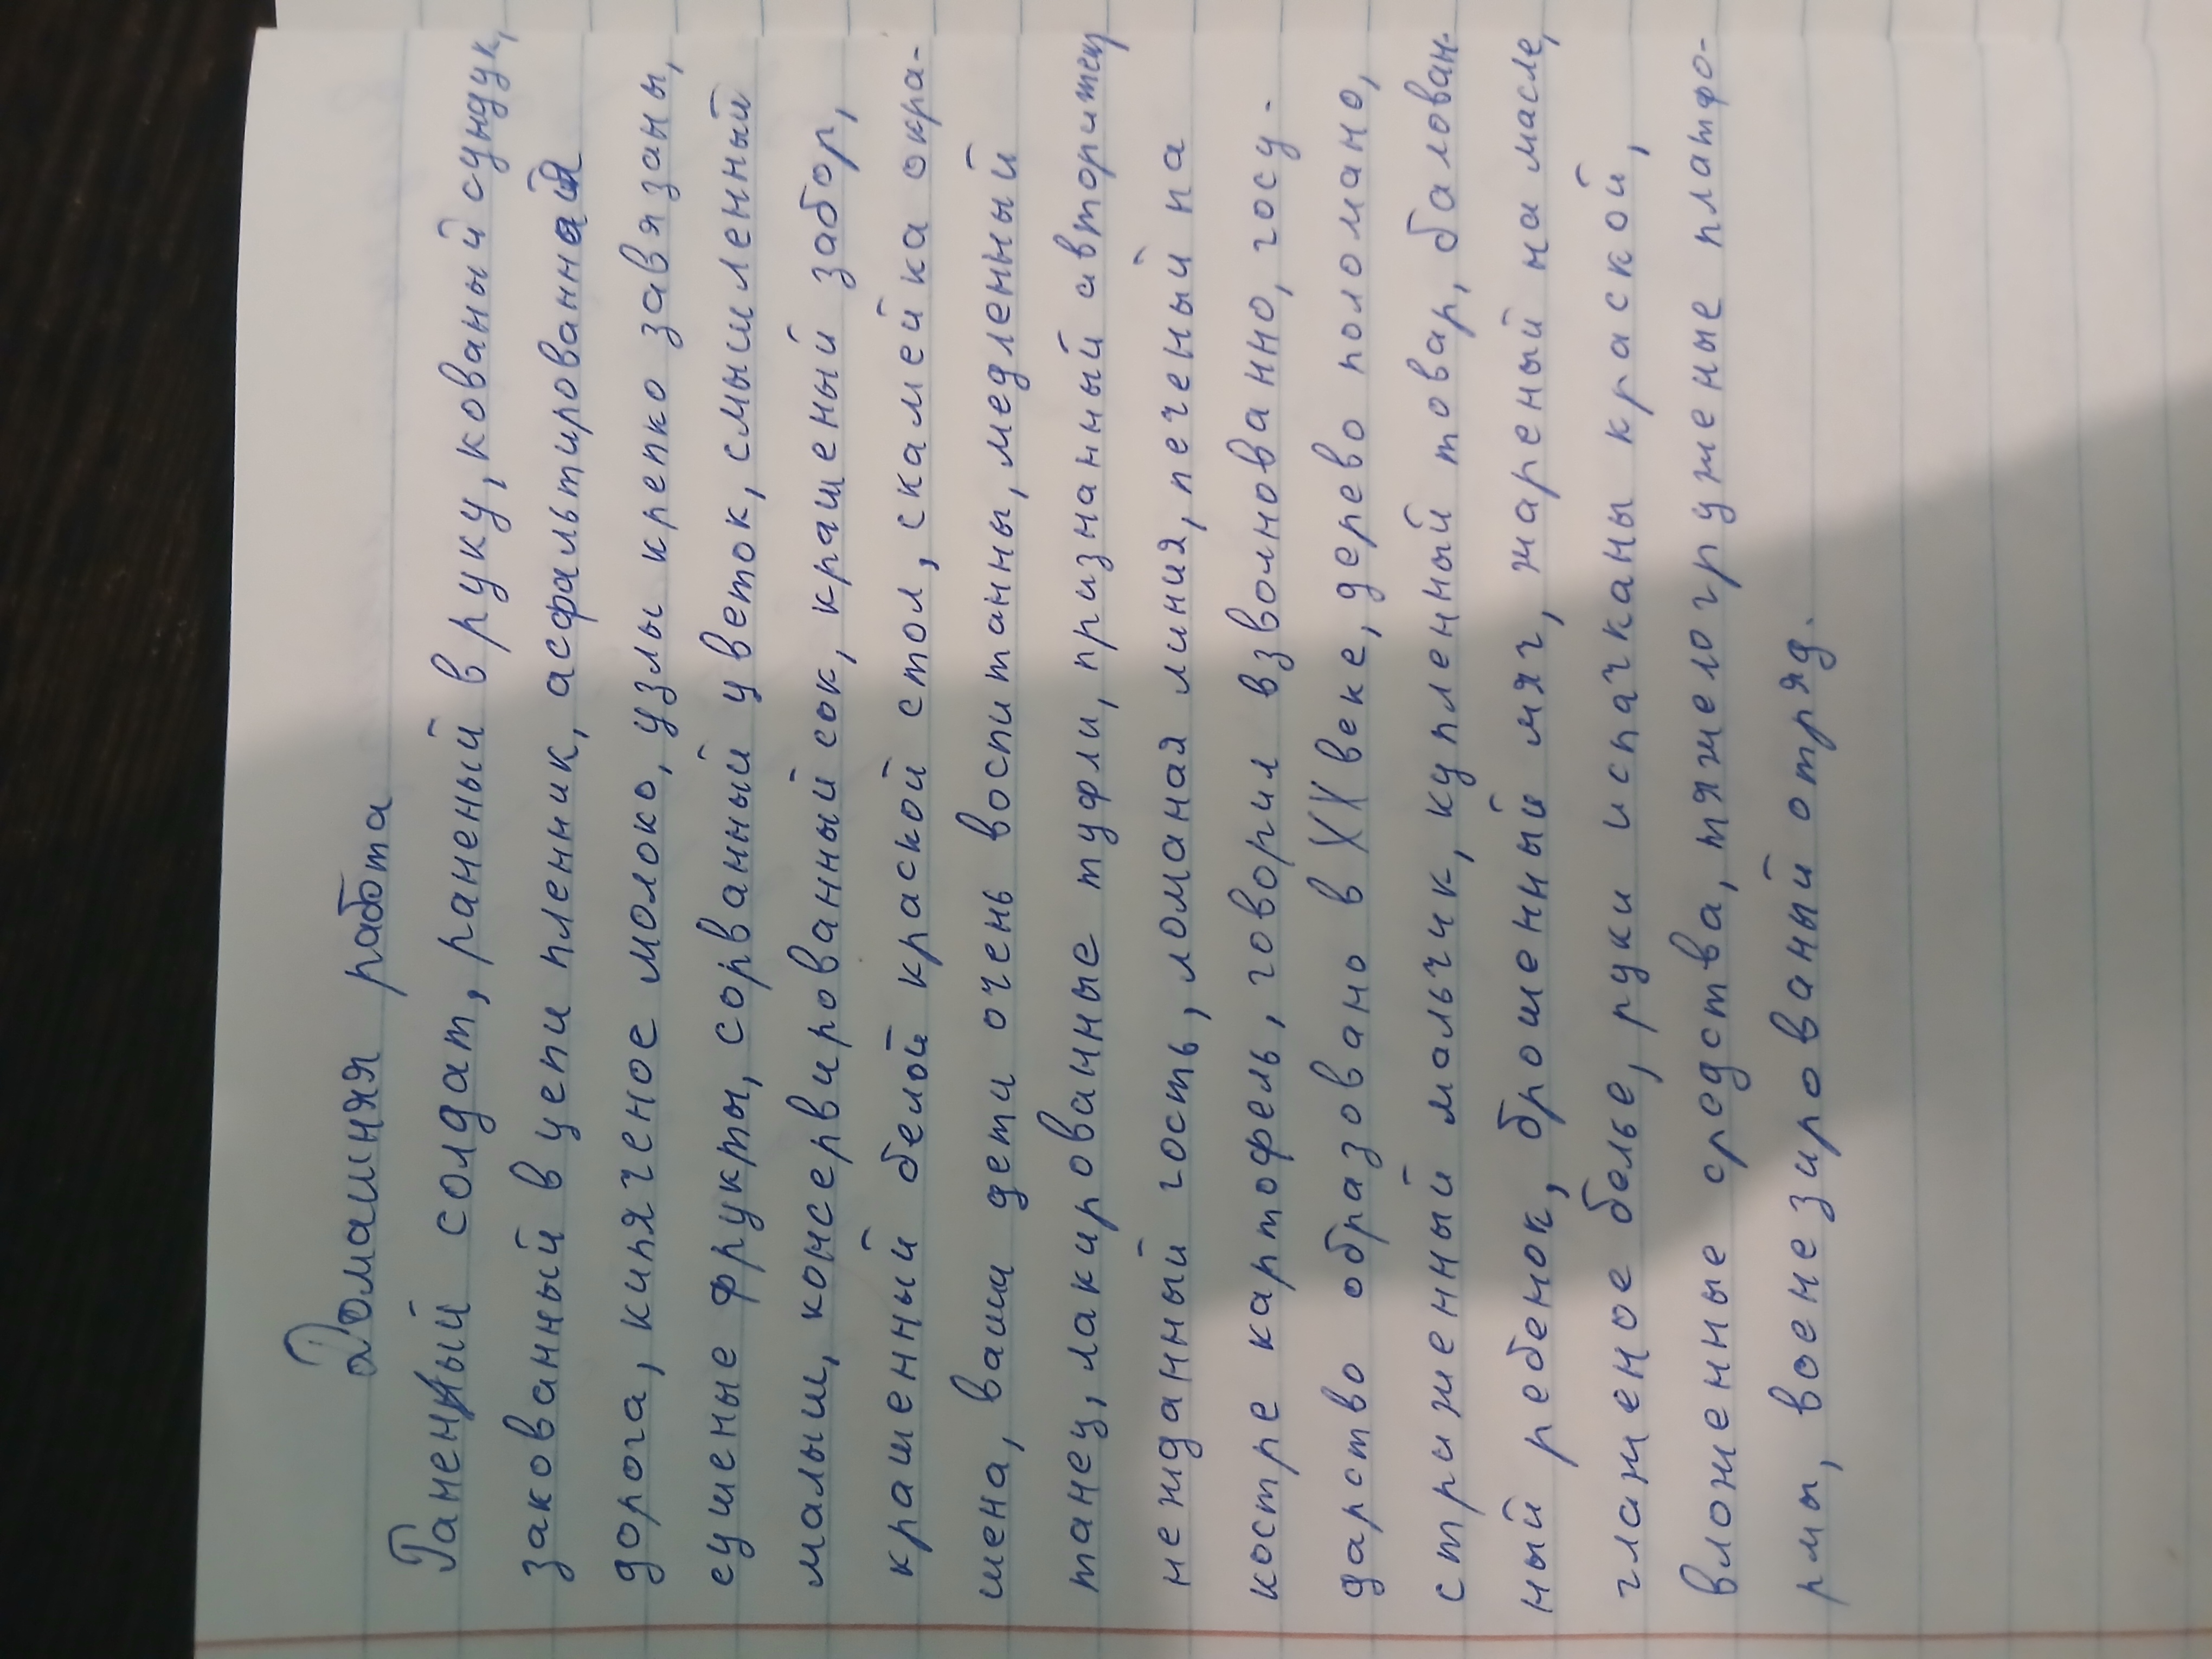 Домашняя работа
Раненный солдат, раненый в руку, кованый сундук,
закованный в цепи пленник, асфальтированная
дорога, кипяченое молоко, узлы крепко завязаны,
сушеные фрукты, сорванный цветок, смышленный
малыш, консервированный сок, крашеный забор,
крашенный белой краской стол, скамейка окра-
шена, ваши дети очень воспитанны, медленный
танец, лакированные туфли, признанный авторитет,
нежданный гость, ломаная линия, печеный на
костре картофель, говорил взволнованно, госу-
дарство образовано в XX веке, дерево поломано,
стриженный мальчик, купленный товар, балован-
ный ребенок, брошенный мяч, жареный на масле,
глаженое белье, руки испачканы краской,
вложенные средства, тяжелогруженые платфо-
рмы, военезированый отряд.